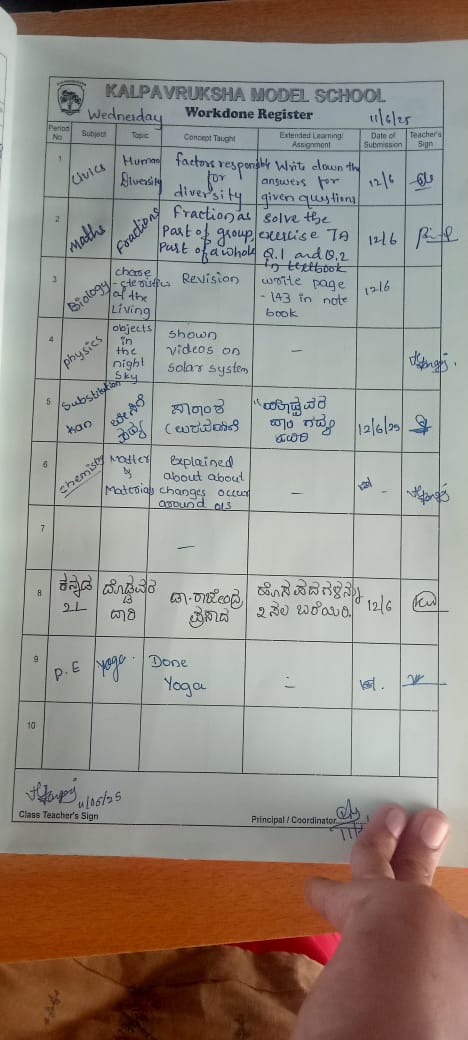 KALPAVRUKSHA MODEL SCHOOL
Wednesday Workdone Register 11/6/25
Period No Subject Topic Concept Taught Extended Learning/ Assignment Date of Submission Teacher's Sign
1 Civics Human Diversity factors responsible for diversity Write down the answers for given questions 12/6
2 Maths Fractions Fraction as Part of group, Part of a whole Solve the exercise 7A Q.1 and Q.2 in textbook 12/6
3 Biology chare-cteristics of the Living Revision write page -143 in note book 12/6
4 Physics objects in the night sky shown videos on solar system –
5 Substitution Kan ಸಾರಾಂಶ 12/6/25
6 chemistry Matter & Materials explained about about changes occur around us –
7 –
8 ಕನ್ನಡ 2L ದೊಡ್ಡವರ ದಾರಿ ಡಾ. ರಾಜೇಂದ್ರ ಪ್ರಸಾದ ಹೊಸ ಪದಗಳನ್ನು 2 ಸಲ ಬರೆಯಿರಿ. 12/6
9 P.E Yoga. Done Yoga –
10
11/06/25
Class Teacher's Sign Principal / Coordinator